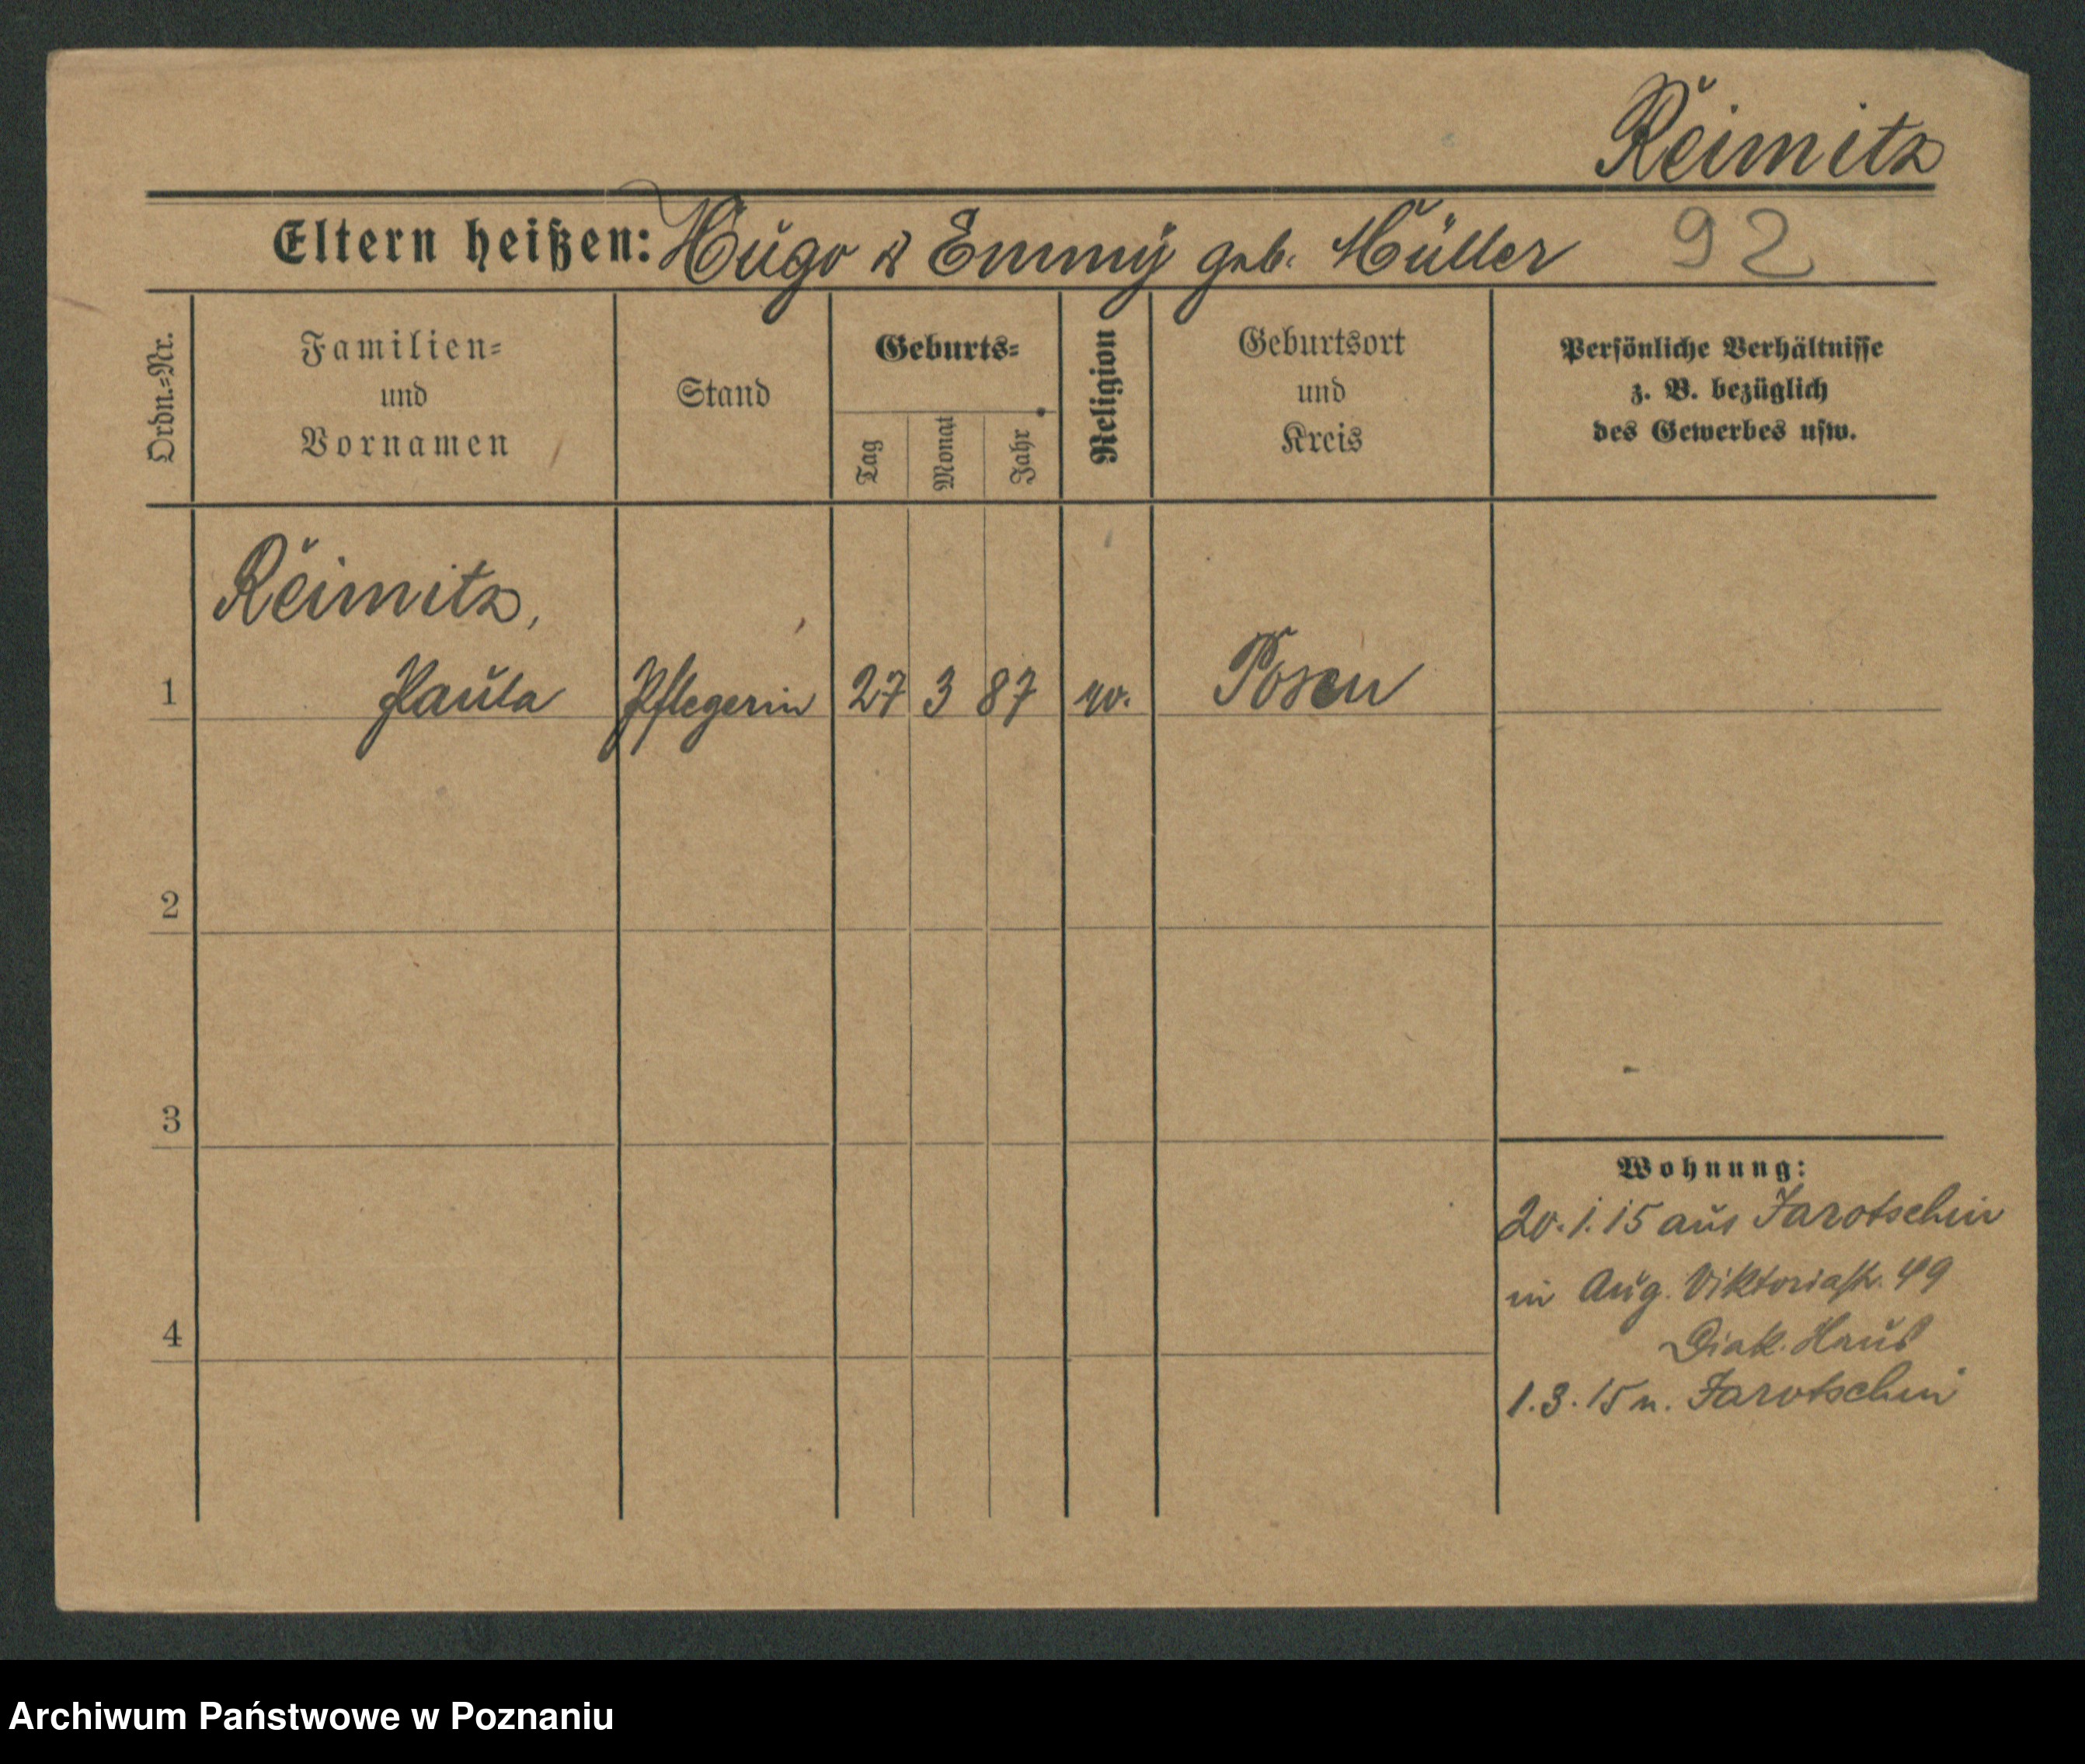 Reimitz
Eltern heißen: Hugo & Emmy geb. Müller 92
Ordn.-Nr.
Familien-
und
Vornamen
Stand
Geburts-
Tag
Monat
Jahr
Religion
Geburtsort
und
Kreis
Persönliche Verhältnisse
z. B. bezüglich
des Gewerbes usw.
Reimitz,
1 Paula Pflegerin 27 3 87 Posen
2
3
4
Wohnung:
20.1.15 aus Jarotschin
in Aug. Viktoriastr. 49
Diak. Haus
1.3.15 n. Jarotschin
Archiwum Państwowe w Poznaniu